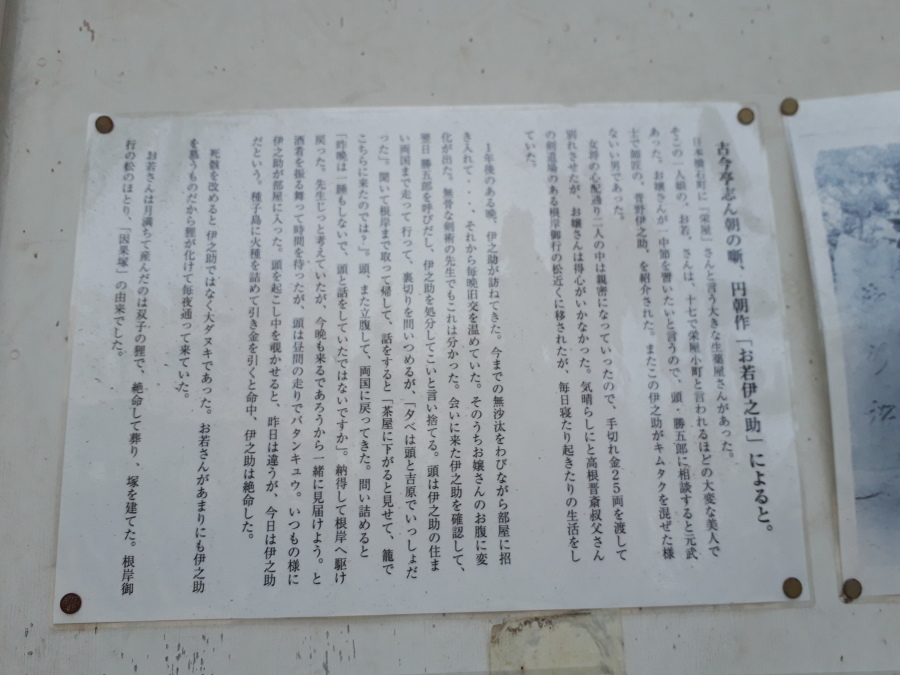 古今亭志ん朝の噺、円朝作「お若伊之助」によると。
日本橋石町に「栄屋」さんと言う大きな生薬屋さんがあった。
そこの一人娘の、お若、さんは、十七で栄屋小町と言われるほどの大変な美人で
あった。お嬢さんが一中節を習いたいと言うので、頭・勝五郎に相談すると元武
士で師匠の、菅野伊之助、を紹介された。またこの伊之助がキムタクを混ぜた様
ないい男であった。
女将の心配通り二人の中は親密になっていったので、手切れ金25両を渡して
別れさせたが、お嬢さんは得心がいかなかった。気晴らしにと高根晋斎叔父さん
の剣道場のある根岸御行の松近くに移されたが、毎日寝たり起きたりの生活をし
ていた。
1年後のある晩、伊之助が訪ねてきた。今までの無沙汰をわびながら部屋に招
き入れて・・・、それから毎晩旧交を温めていた。そのうちお嬢さんのお腹に変
化が出た。無骨な剣術の先生でもこれは分かった。会いに来た伊之助を確認して、
翌日 勝五郎を呼びだし、伊之助を処分してこいと言い捨てる。頭は伊之助の住ま
い両国まで走って行って、裏切りを問いつめるが、「夕べは頭と吉原でいっしょだ
った」。聞いて根岸まで取って帰して、話をすると「茶屋に下がると見せて、籠で
こちらに来たのでは？」。頭、また立腹して、両国に戻ってきた。問い詰めると
「昨晩は一睡もしないで、頭と話をしていたではないですか」。納得して根岸へ駆け
戻った。先生じっと考えていたが、今晩も来るであろうから一緒に見届けよう。と
酒肴を振る舞って時間を待ったが、頭は昼間の走りでバタンキュウ。いつもの様に
伊之助が部屋に入った。頭を起こし中を覗かせると、昨日は違うが、今日は伊之助
だという。種子島に火種を詰めて引き金を引くと命中、伊之助は絶命した。
死骸を改めると 伊之助ではなく大ダヌキであった。お若さんがあまりにも伊之助
を慕うものだから狸が化けて毎夜通って来ていた。
お若さんは月満ちて産んだのは双子の狸で、絶命して葬り、塚を建てた。根岸御
行の松のほとり、「因果塚」の由来でした。